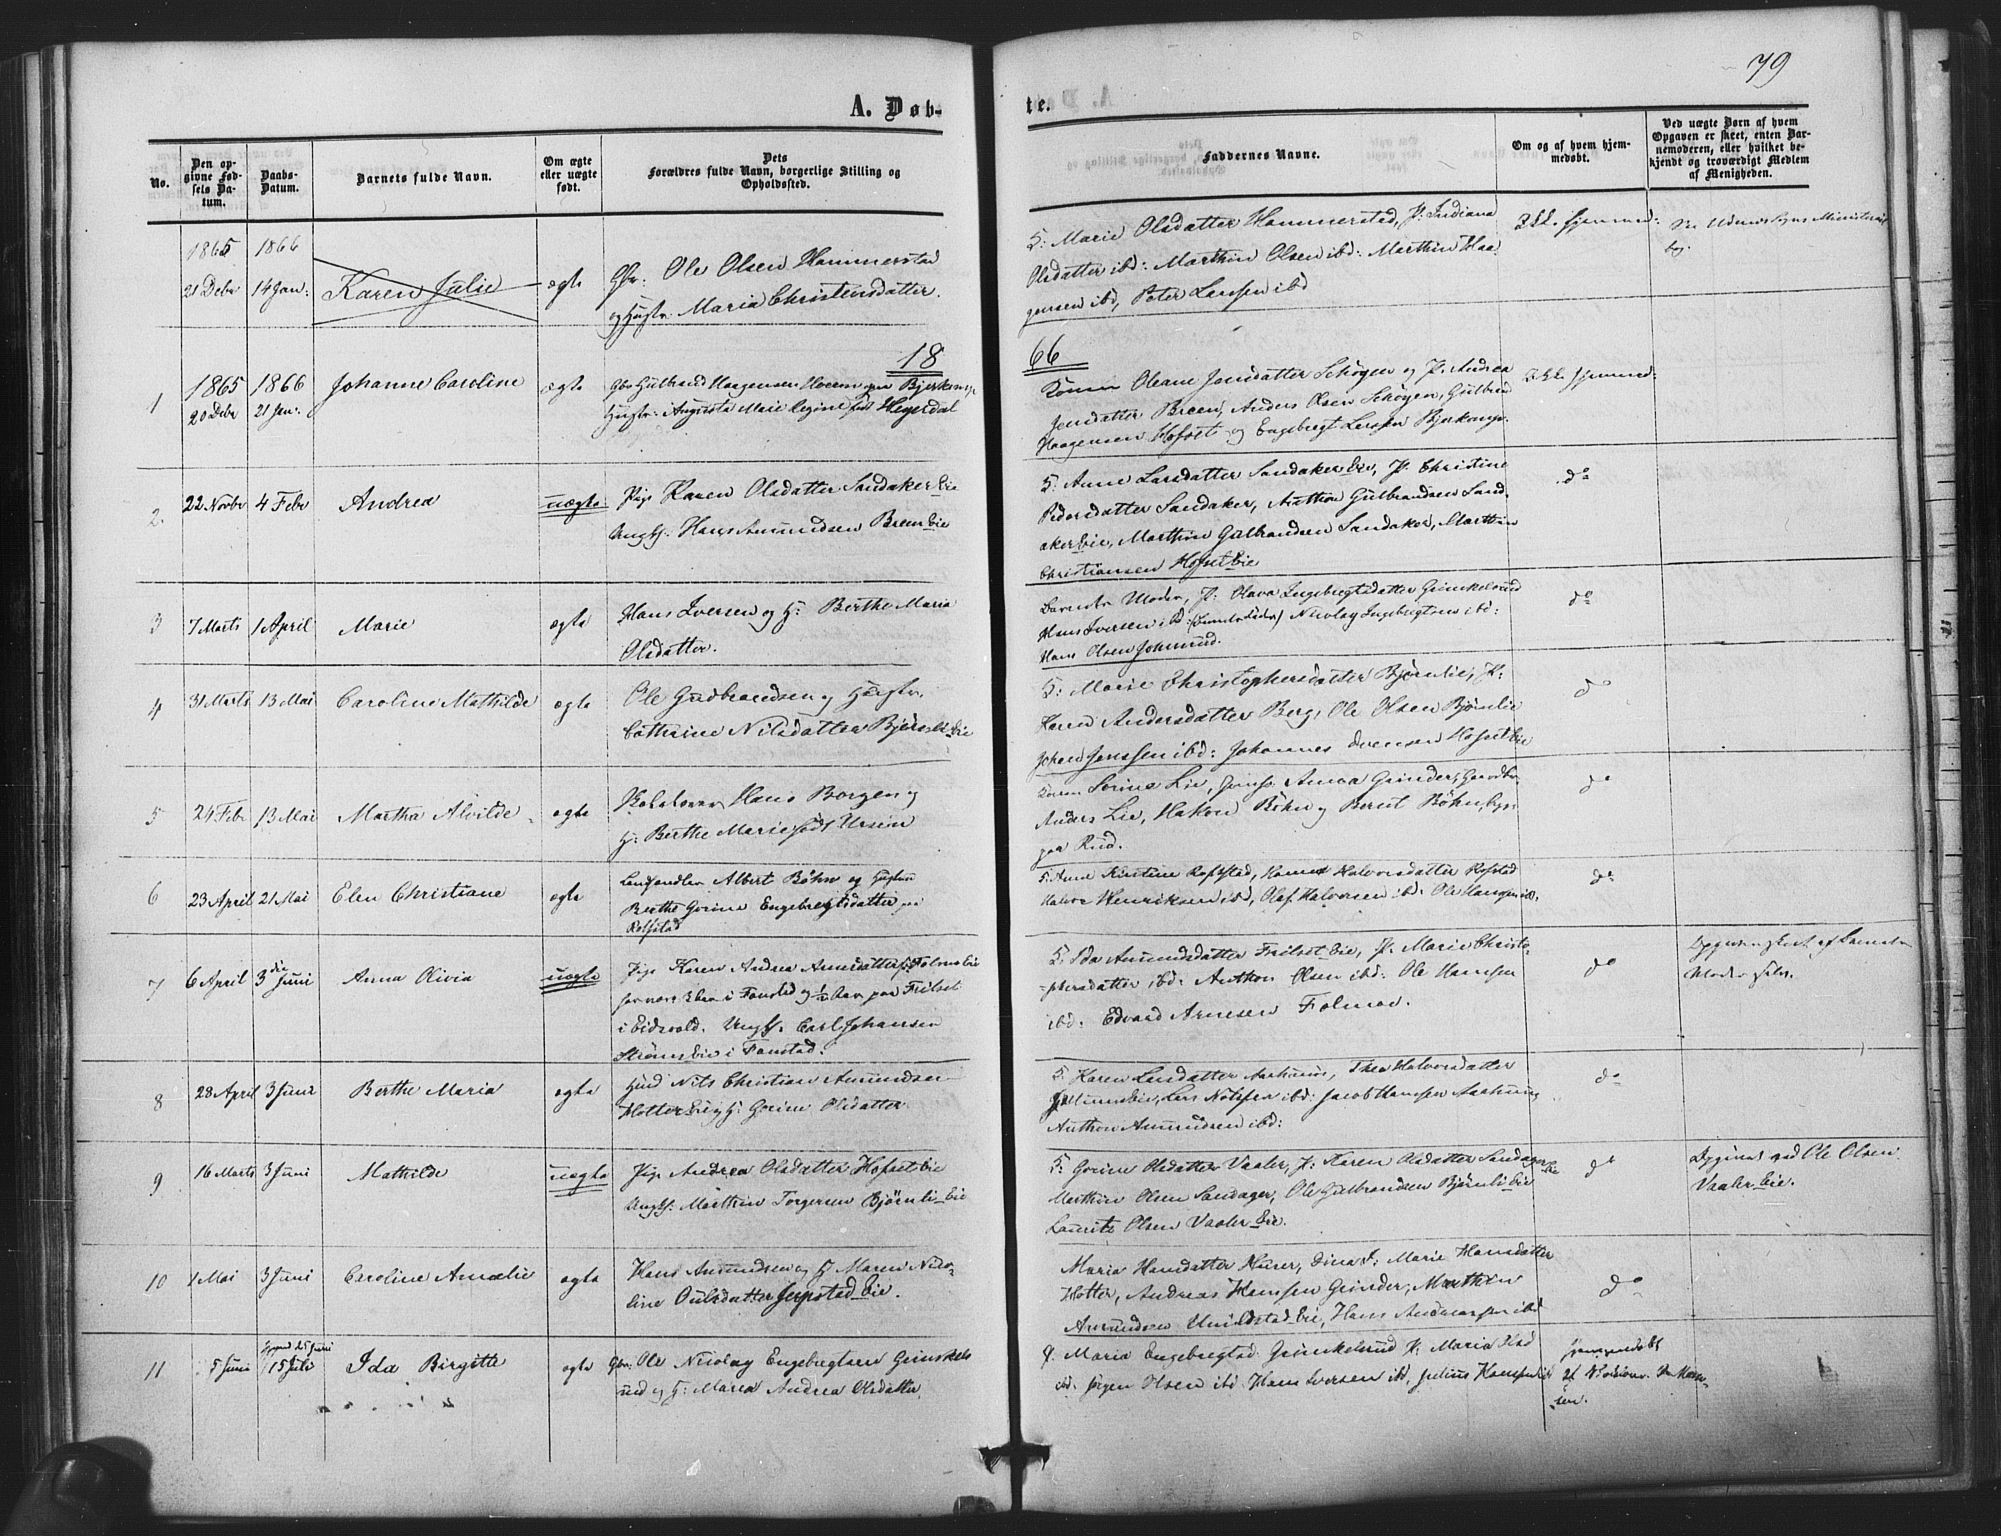 79
A. Døb-
te.
No.
Den op-
givne Fød-
sels Da-
tum.
Daabs-
Datum.
Barnets fulde Navn.
Om ægte
eller uægte
født.
Dets
Forældres fulde Navn, borgerlige Stilling og
Opholdssted.
Faddernes Navne.
Om og af hvem hjem-
medøbt.
Ved uægte Børn af hvem
Opgaven er skeet, enten Bar-
nemoderen, eller hvilket be-
kjendt og troværdigt Medlem
af Menigheden.
1865 1866
21 Debr 14 Jan: Karen Julie ægte
Ole Olsen Hammerstad
og Hustr: Maria Christensdatter.
Marie Olsdatter Hammerstad, P. Indiana
Olsdatter ibd: Marthin Olsen ibd: Marthin Haa
gensen ibd, Peter Larsen ibd
Ikke hjemmed:
1866
1 1865 1866 Johanne Caroline ægte
20 Debr 21 Jan:
Gulbrand Haagensen Bjerkeng,
Hustr: Augusta Marie Regine født Hegerdal
Konen Oleane Jensdatter Schøyen og P. Andrea
Jensdatter Breen, Anders Olsen Schøyen, Gulbrand
Haagensen Hofset og Engebregt Larsen Bjerkeng.
Ikke hjemmed:
2. 22 Novbr 4 Febr Andrea uægte
Pige Karen Olsdatter Sandaker Eie
Ungk. Hans Amundsen Breen Eie
Anne Larsdatter Sandaker Eie, P. Christine
Pedersdatter Sandaker, Anthon Gulbrandsen Sand
aker Eie, Marthin Gulbrandsen Sandaker, Marthin
Christiansen Hofset Eie
do
3 7 Marts 1 April Marie ægte
Hans Iversen og H: Berthe Maria
Olsdatter.
Barnets Moder, P. Olava Ingebregtsdatter Grinkelsrud
Hans Iversen ibd: Nicolay Ingebregtsen ibd:
Hans Olsen
do
4 31 Marts 13 Mai Caroline Mathilde ægte
Ole Gudbrandsen og Hustr.
Cathrine Nilsdatter Eie
Marie Christophersdatter Bjørnlie, P.
Karen Andersdatter Berg, Ole Olsen Bjørnlie
Johan Jenssen ibd: Johannes Svensen Hofset Eie
do
5 24 Febr 13 Mai Martha Alvilde ægte
Skolelærer Hans Borgen og
H: Berthe Marie født Ursin
Konen Sorine Lie, Anna Grinder,
Anders Lie, Hakon Bøhn og Bernt Bøhn,
paa Rud.
do
6 23 April 21 Mai Elen Christiane ægte
Landhandler Albert Bøhn og Hustru
Berthe Gorine Engebregtsdatter paa
Rolfstad
Anne Kirstine Rolfstad, Halvorsdatter Rofstad
Henriksen ibd, Olaf Halvorsen ibd: Ole Hansen ibd.
do
7 6 April 3die Juni Anna Olivia uægte
Pige Karen Andrea Arnesdatter Folmo Eie
i Fonstad og 1/2 Aar paa Frilset
i Eidsvold. Ungk. Carl Johansen
Strøms Eie i Fonstad.
Ida Amundsdatter Frilset Eie, P. Marie Christo-
phersdatter ibd: Anthon Olsen ibd: Ole Hansen
ibd: Edvard Arnesen Folmoe.
do
Opgivelse skeet af Barnets
Moder selv.
8 28 April 3 Juni Berthe Maria ægte
Nils Christian Amundsen
Hotter Eie og H: Gorine Olsdatter
Karen Larsdatter Aarhuus, Thea Halvorsdatter
Lars Nilssen ibd: Jacob Hanssen Aarhuus
Anthon Amundsen ibd:
do
9 16 Marts 3 Juni Mathilde uægte
Pige Andrea Olsdatter Hofset Eie
Ungk: Marthin Torgersen Bjørnli Eie
Gorine Olsdatter Vaaler, P. Karen Olsdatter Sandager Eie
Marthin Olsen Sandager, Ole Gulbrandsen Bjørnli Eie
Laurits Olsen Vaaler Eie.
do
Opgivet ved Ole Olsen
Vaaler Eie.
10 1 Mai 3 Juni Caroline Amalie ægte
Hans Amundsen og H Maren Nico-
line Eie.
Maria Hansdatter Dina P. Marie Hansdatter
Hotter, Andreas Hansen Grinder, Marthin
Amundsen Eie, Hans Andreassen ibd
do
11 5 Juni 25 Juni
15 Juli Ida Birgitte ægte
Gbr. Ole Nicolay Engebregtsen Grinkels
rud og H: Maren Andrea Olsdatter
Maria Engebregtsd. Grinkelsrud P. Maria Olsd
ibd. Jørgen Olsen ibd Hans Iversen ibd, Julius Hansen ibd
Hjemmedøbt
af
sen.